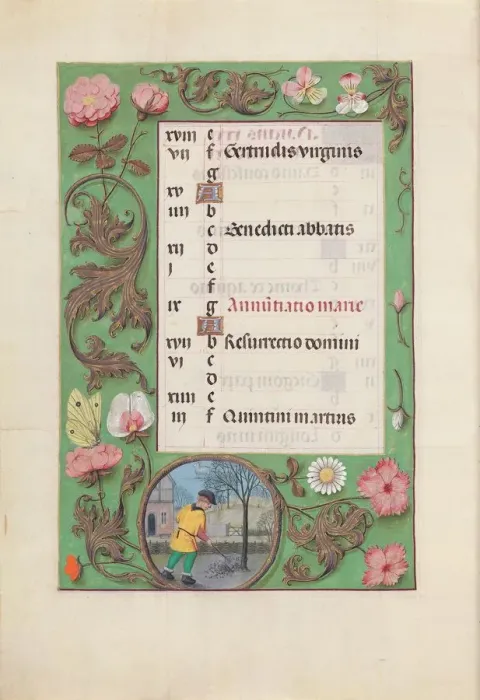 xviij e
vij f Gertrudis virginis
g
xv A
iiij b
c Benedicti abbatis
xij d
j e
f
ix g Annūtiatio marie
A
xvij b Resurrectio domini
vj c
d
xiiij e
iij f Quintini martiris